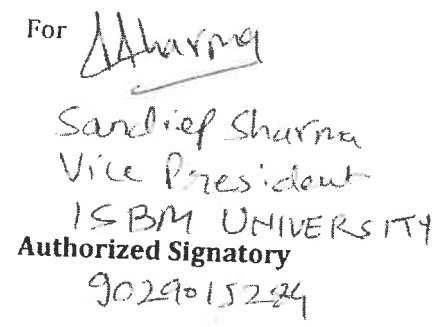 For Sharma
Sandief Sharma
Vice President
ISBM UNIVERSITY
Authorized Signatory